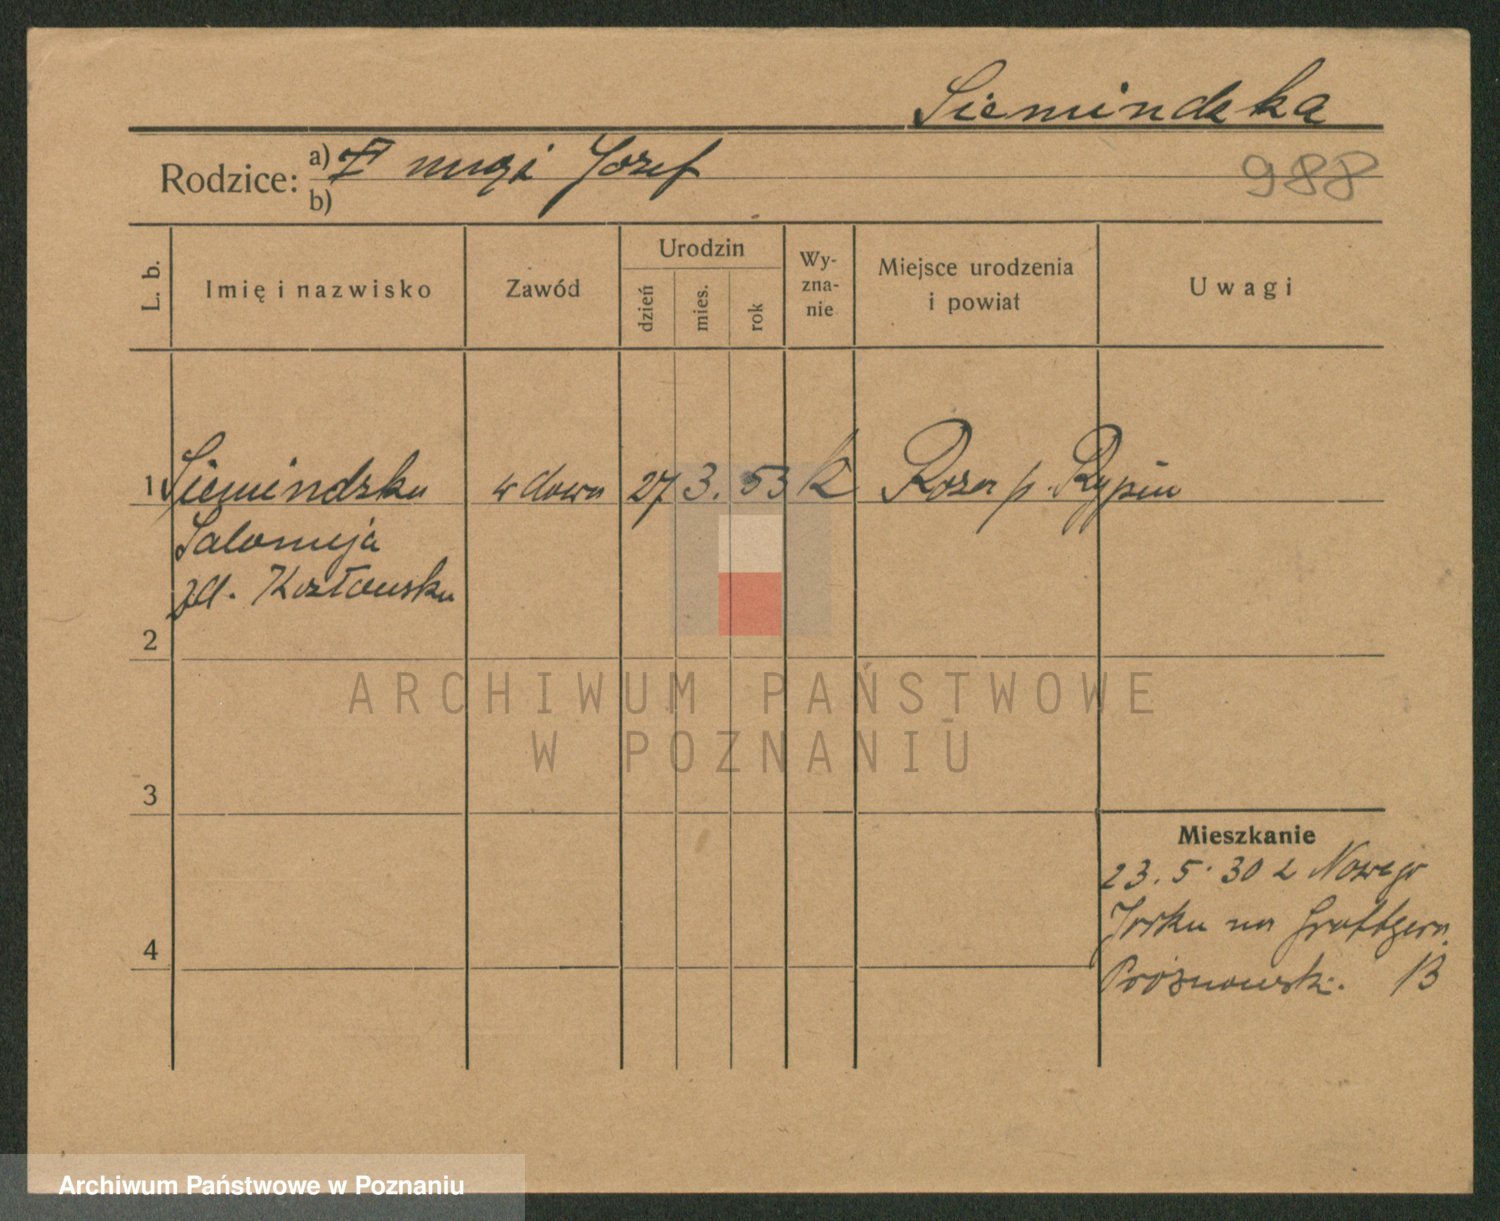 Siemindzka
Rodzice: a) † mąż Jozef
b)
988
L. b.
Imię i nazwisko
Zawód
Urodzin
dzień
mies.
rok
Wy-
zna-
nie
Miejsce urodzenia
i powiat
Uwagi
1 Siemindzka wdowa 27 3. 53 K p. Rypin
Salomeja
Kozłowska
2
ARCHIWUM PAŃSTWOWE
W POZNANIU
3
Mieszkanie
23. 5. 30 z Nowego
Jorku na
4
13
Archiwum Państwowe w Poznaniu